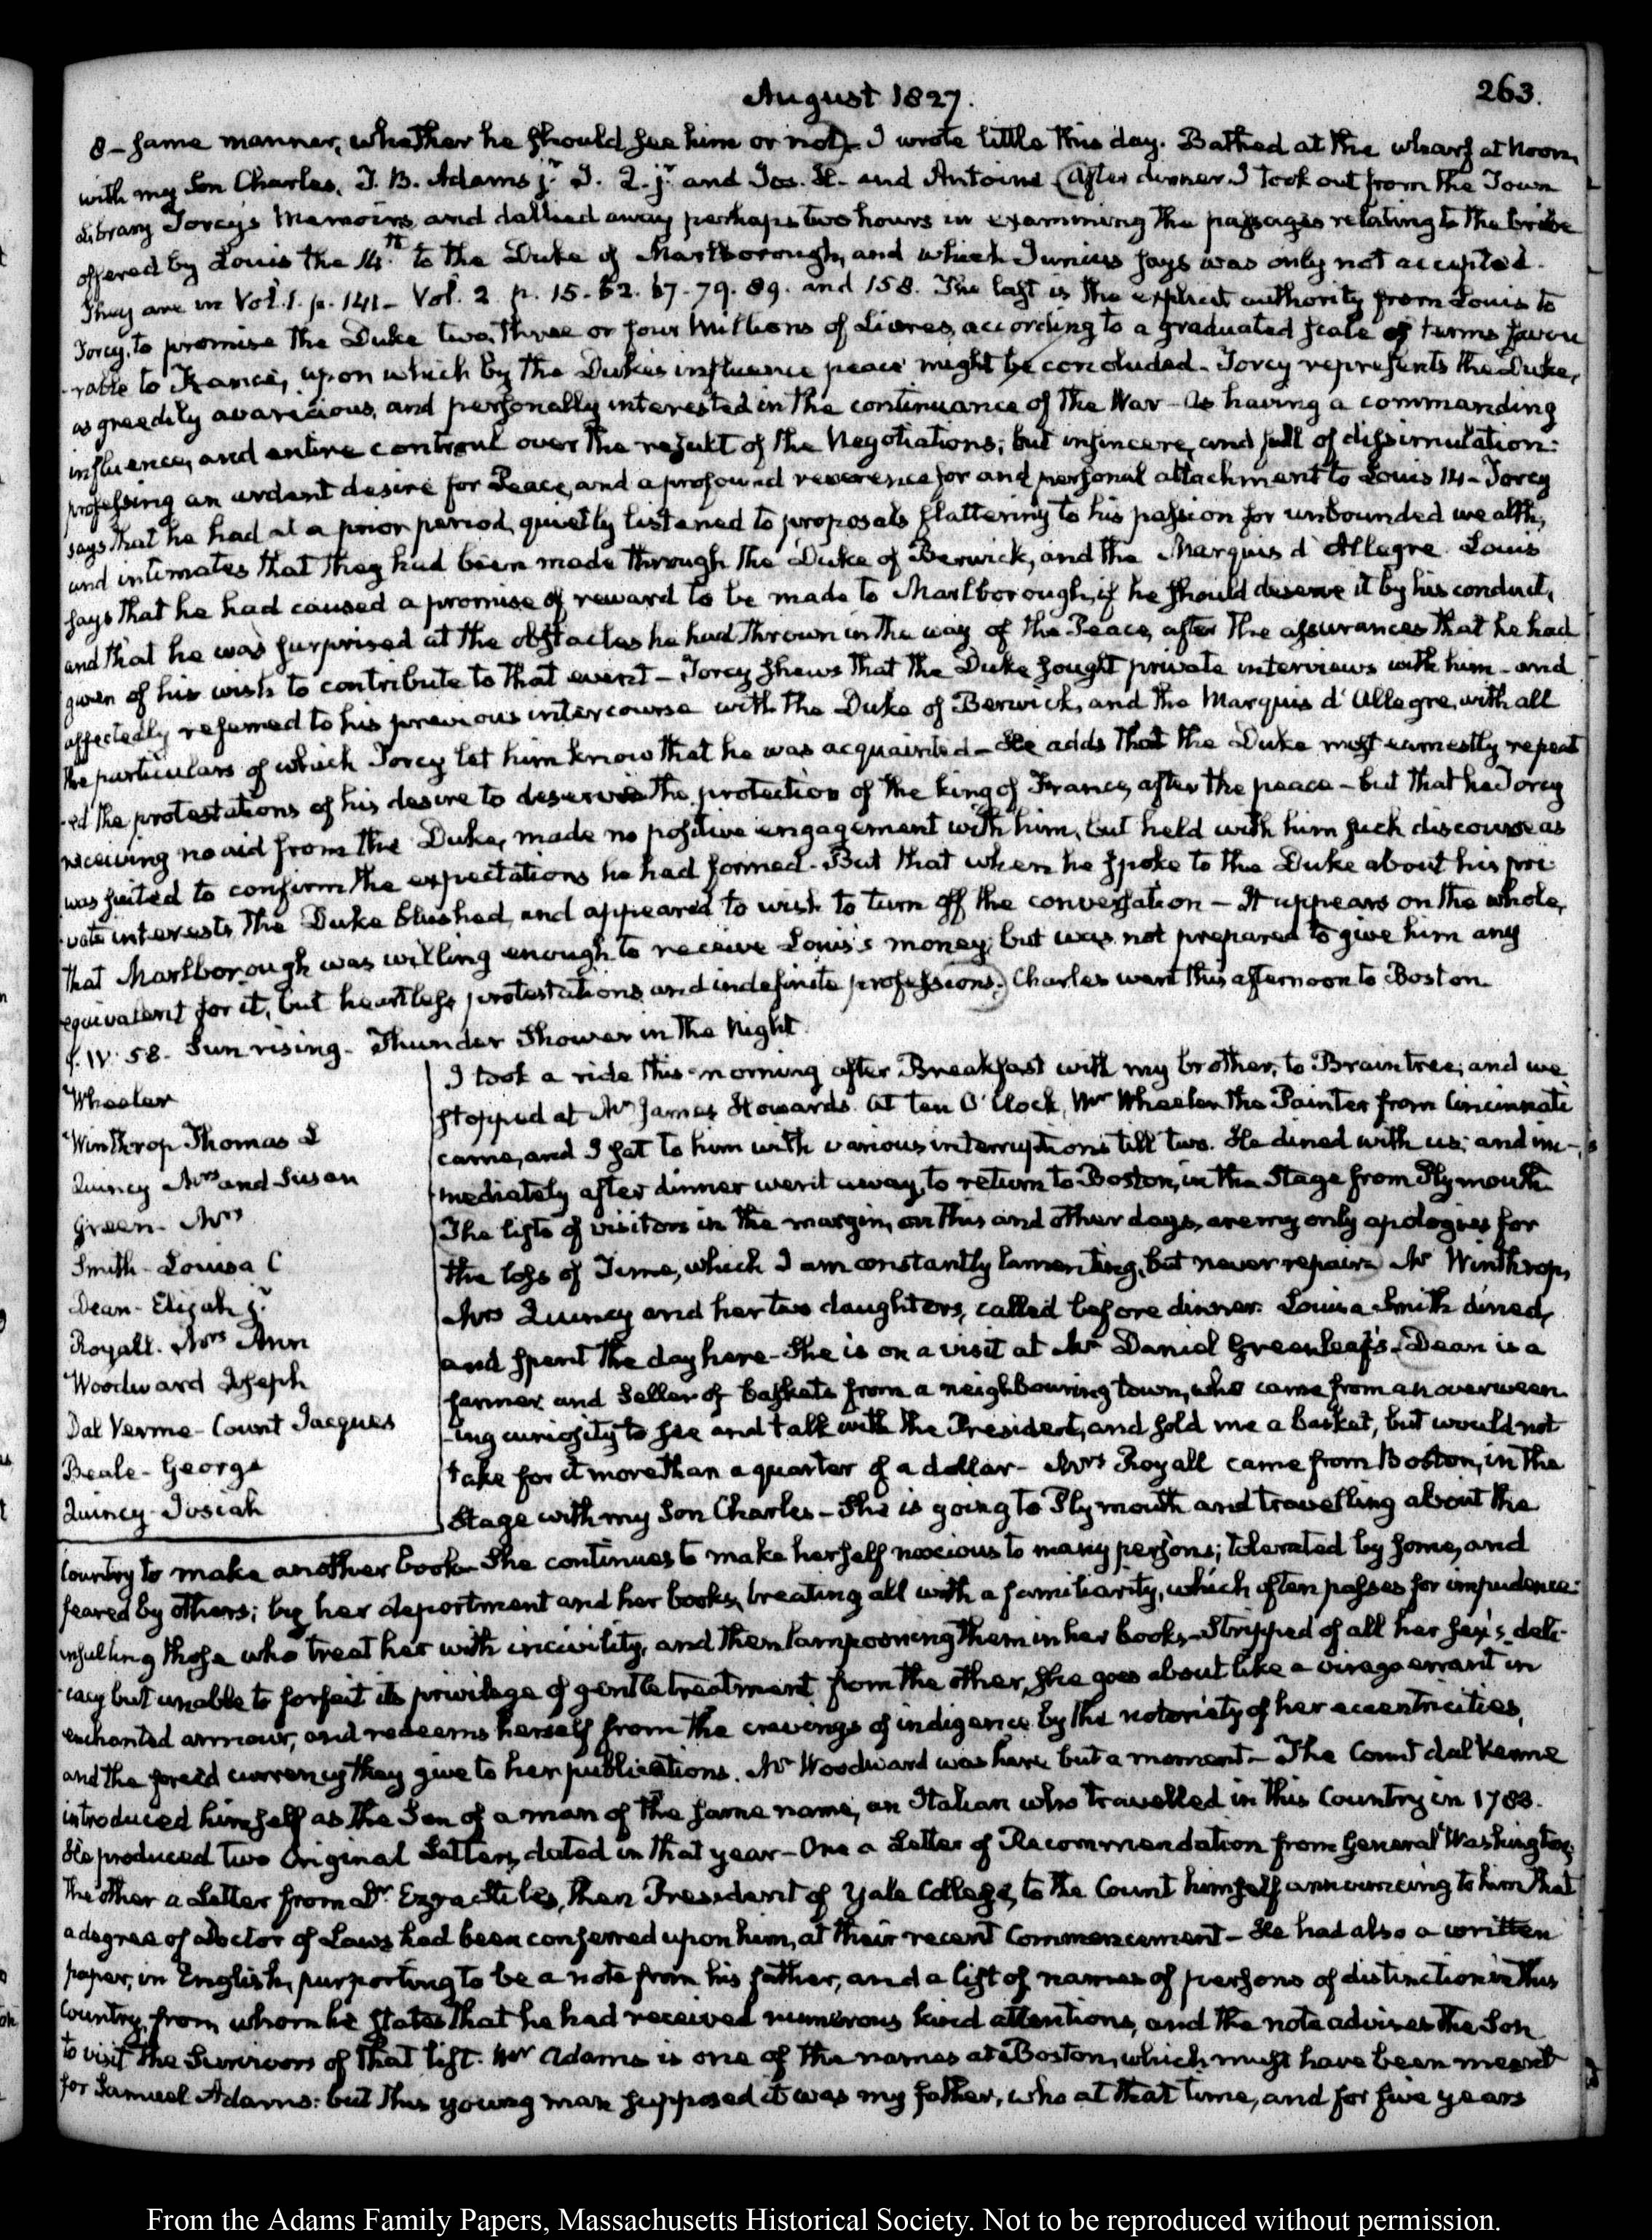 August 1827.
263.
8 — same manner, whether he should see him or not). I wrote little this day. Bathed at the wharf at Noon,
with my Son Charles, J. B. Adams jr. J. Q. jr. and Jos. H. and Antoine (After dinner I took out from the Town
Library Torcy's Memoirs and dallied away perhaps two hours in examining the passages relating to the bribe
offered by Louis the 14.th to the Duke of Marlborough, and which Junius says was only not accepted.
They are in Vol. 1. p. 141 — Vol. 2. p. 15. 62. 67. 79. 89. and 158. The last is the explicit authority from Louis to
Torcy, to promise the Duke two, three or four Millions of Livres, according to a graduated scale of terms favou
-rable to France, upon which by the Duke's influence peace might be concluded — Torcy represents the Duke,
as greedily avaricious, and personally interested in the continuance of the War — as having a commanding
influence, and entire controul over the result of the Negotiations; but insincere, and full of dissimulation:
professing an ardent desire for Peace, and a profound reverence for and personal attachment to Louis 14 — Torcy
says that he had at a prior period, quietly listened to proposals flattering to his passion for unbounded wealth,
and intimates that they had been made through the Duke of Berwick, and the Marquis d'Allegre. Louis
says that he had caused a promise of reward to be made to Marlborough, if he should deserve it by his conduct,
and that he was surprised at the obstacles he had thrown in the way of the Peace, after the assurances that he had
given of his wish to contribute to that event — Torcy shews that the Duke sought private interviews with him — and
affectedly referred to his previous intercourse with the Duke of Berwick, and the Marquis d'Allegre, with all
the particulars of which Torcy let him know that he was acquainted — He adds that the Duke most earnestly repeat
-ed the protestations of his desire to deserve the protection of the king of France, after the peace — but that he Torcy
receiving no aid from the Duke, made no positive engagement with him, but held with him such discourse as
was suited to confirm the expectations he had formed. But that when he spoke to the Duke about his pri
-vate interests, the Duke blushed, and appeared to wish to turn off the conversation — It appears on the whole,
that Marlborough was willing enough to receive Louis's money; but was not prepared to give him any
equivalent for it, but heartless protestations and indefinite professions.) Charles went this afternoon to Boston.
9. IV. 58. Sun rising. Thunder Shower in the Night.
Wheeler
Winthrop Thomas L
Quincy Mrs and Susan
Green — Mrs
Smith — Louisa C
Dean — Elijah jr.
Royall. Mrs Ann
Woodward Joseph
Dal Verme — Count Jacques
Beale — George
Quincy — Josiah
I took a ride this morning after Breakfast with my brother, to Braintree; and we
stopped at Mr James Howards. At ten O'Clock, Mr Wheeler the Painter from Cincinnati
came, and I sat to him with various interruptions till two. He dined with us; and im-
-mediately after dinner went away, to return to Boston, in the Stage from Plymouth.
The lists of visitors in the margin, on this and other days, are my only apologies for
the loss of Time, which I am constantly lamenting, but never repair. Mr Winthrop,
Mrs Quincy and her two daughters, called before dinner. Louisa Smith dined,
and spent the day here — She is on a visit at Mr Daniel Greenleaf's. (Dean is a
farmer and Seller of baskets from a neighbouring town, who came from an overween
-ing curiosity to see and talk with the President, and sold me a basket, but would not
take for it more than a quarter of a dollar — Mrs Royall came from Boston, in the
Stage with my Son Charles — She is going to Plymouth and travelling about the
Country to make another book — She continues to make herself noxious to many persons; tolerated by some, and
feared by others; by her deportment and her books, treating all with a familiarity, which often passes for impudence:
insulting those who treat her with incivility, and then lampooning them in her books — Stripped of all her sex's deli-
-cacy but unable to forfeit its privilege of gentle treatment from the other, she goes about like a virago errant in
enchanted armour, and redeems herself from the cravings of indigence by the notoriety of her eccentricities,
and the forced currency they give to her publications. Mr Woodward was here but a moment — The Count dal Verme
introduced himself as the Son of a man of the same name, an Italian who travelled in this Country in 1783.
He produced two original Letters, dated in that year — One a Letter of Recommendation from General Washington;
the other a Letter from Dr. Ezra Stiles, then President of Yale College, to the Count himself announcing to him that
a degree of Doctor of Laws had been conferred upon him, at their recent Commencement — He had also a written
paper, in English, purporting to be a note from his father, and a list of names of persons of distinction in this
Country, from whom he states that he had received numerous kind attentions, and the note advises the Son
to visit the Survivors of that list. Mr Adams is one of the names at Boston, which must have been meant
for Samuel Adams: but this young man supposed it was my father, who at that time, and for five years
From the Adams Family Papers, Massachusetts Historical Society. Not to be reproduced without permission.